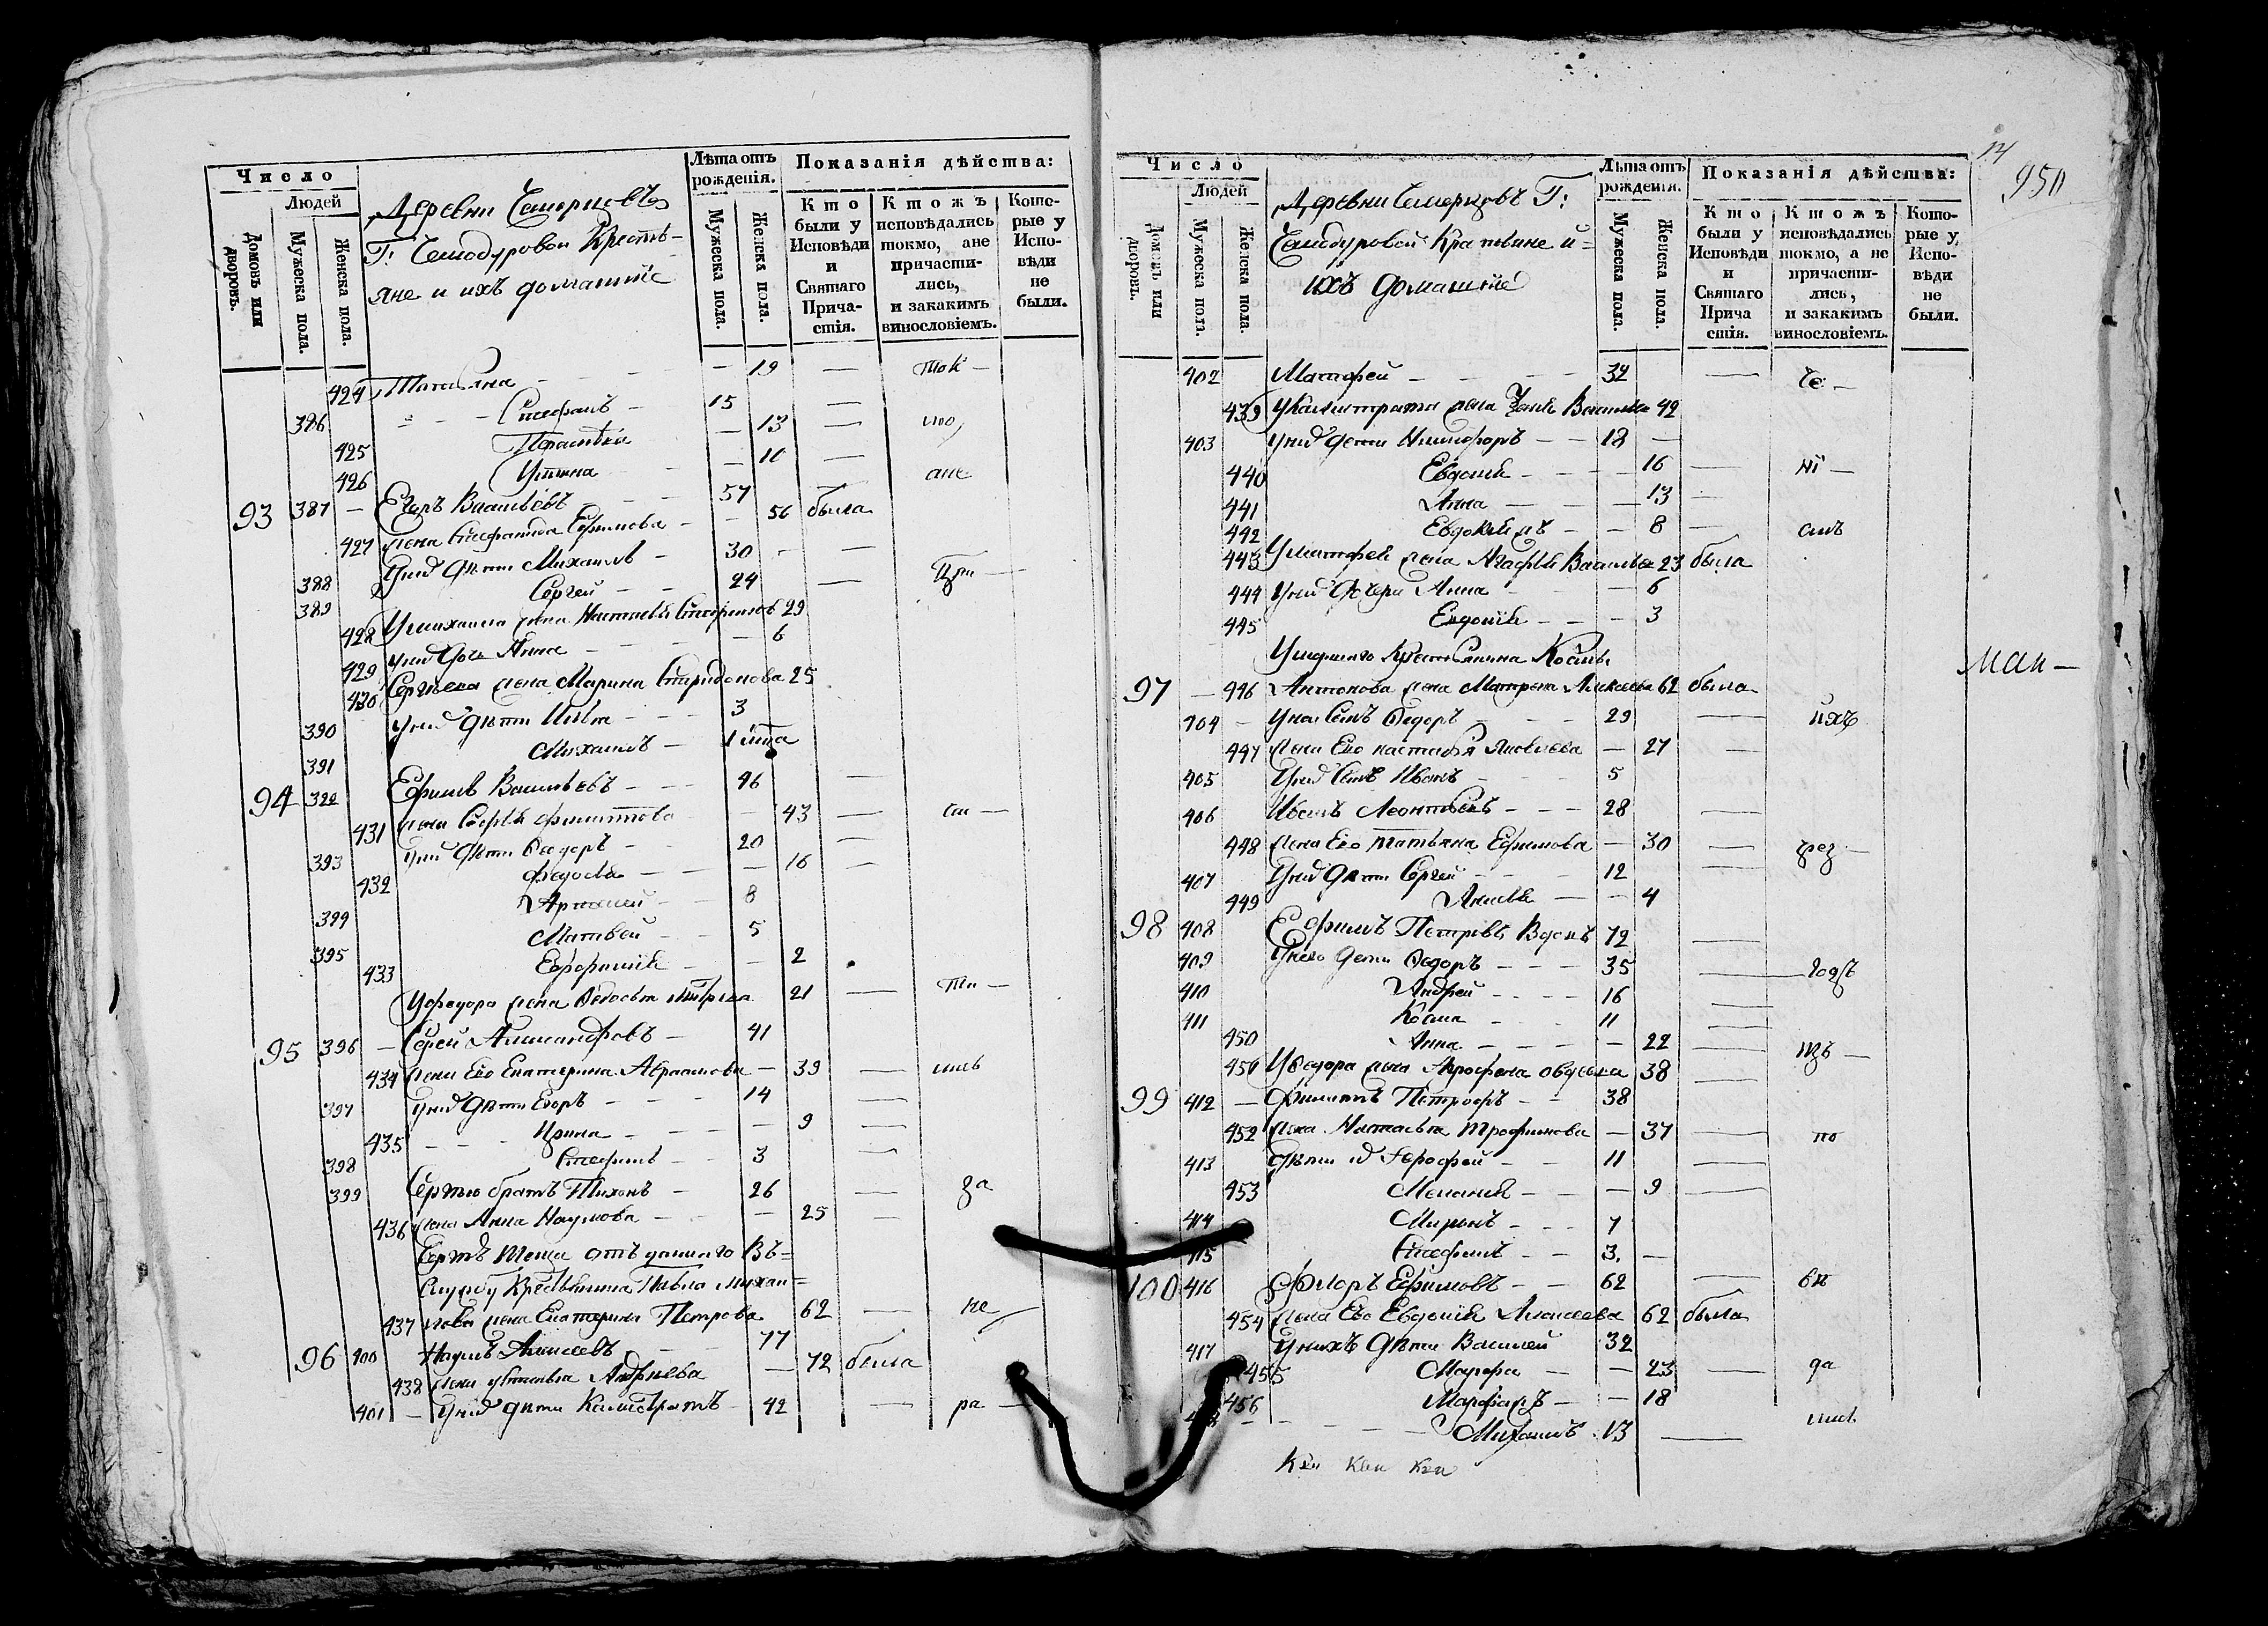 Число
Людей
Домовъ или дворовъ.
Мужеска пола.
Женска пола.
Деревни
Г: Чемодуровой Крестья-
яне и ихъ домашніе
Лѣта отъ рожденія.
Мужеска пола.
Женска пола.
Показанія дѣйства:
Кто были у Исповѣди и Святаго Причастія.
Ктожъ исповѣдались токмо, ане причастились, и закакимъ винословіемъ.
Которые у Исповѣди не были.
424 Татьяна - - - - 19 — ток —
386 - - - Стефанъ - 15 —
425 Парасковья — 13 — мо,
426 Устина — 10 —
ане
93 387 — Егоръ Васильевъ - - 57
427 жена Ефимова - - 56 была
388 У нихъ дѣти Михаилъ - 30 - —
При —
389 Сергей - - 24 —
428 У михаила жена Настасья 29
429 у нихъ дочь Анна - - - 6
430 Сергѣева жена Марина Спиридонова 25
390 у нихъ дѣти Илья - - - 3
391 Михаилъ - 1 лѣта
94 392 Ефимъ Васильевъ - - - 46 —
431 жена Софья Филиппова - - 43 — сти —
393 у нихъ дѣти Федоръ - - 20 —
432 Федосья - - - 16 —
394 Артемей - - 8
395 Матвей - - 5
433 Ефросинья - - 2
У федора жена Федосья 21 — ли —
95 396 — Сергей Александровъ - 41
434 жена Его Екатерина Абрамова - 39 — лись
397 у нихъ дѣти Егоръ - - - 14 —
435 - - - Ирина - - - - 9 —
398 Стефанъ - - 3 —
399 Сергѣю братъ Тихонъ - 26 — за
436 жена Анна Наумова - - - 25 —
Сергѣя теща отъданнаго Въ=
Службу Крестьянина Павла михаи=
437 лова жена Екатерина Петрова 62 — не
96 400 Наумъ Алексеевъ - - 77
438 жена Устинья Андреева - 72 была
401 — у нихъ дѣти Калистратъ 42 — ра —
Число
Людей
Домовъ или дворовъ.
Мужеска пола.
Женска пола.
Деревни Г:
Чемодуровой Крестьяне и=
ихъ домашніе
Лѣта отъ рожденія.
Мужеска пола.
Женска пола.
Показанія дѣйства:
Кто были у Исповѣди и Святаго Прича стія.
Ктожъ исповѣдались токмо, а не причастились, и закакимъ винословіемъ.
Которые у Исповѣди не были.
14
950
402 Матофей - - - - 32 — че —
439 У Калистрата жена 42
403 у нихъ дети Никифоръ - - 18 —
440 Евдокія - - - 16 — ні —
441 Анна - - - 13 -
442 - - 8 - емъ
443 У матофея жена Агафья Васильева 23 была
444 У нихъ дочери Анна - - - 6
445 Евдокія - - - 3
Умершаго Крестьянина Косьмы
97 — 446 Антонова жена Матрена Алексеева 62 была
ман —
404 — У ней Сынъ Федоръ - - - 29 — ихъ
447 жена Его настасья Яковлева - 27 —
405 У нихъ Сынъ Иванъ - - 5
406 Иванъ Леонтьевъ - - - 28 —
448 жена Его татьяна Ефимова - 30 — чрез —
407 У нихъ дѣти Сергей - - - 12 —
449 - - 4
98 408 Ефимъ Петровъ Вдовъ 72 —
409 У него дети Федоръ - - - 35 — годъ
410 Андрей - - - - 16 —
411 Косма - - - 11 —
450 Анна - - - - 22 —
изъ —
451 У Федора жена 38 —
99 412 — Филиппъ Петровъ - - 38
452 жена Настасья Трофимова - 37 — по
413 дѣти Ерофей - - 11 —
453 Меланія - - - 9 —
414 Миронъ - - - 7
415 Стефанъ - - 3. —
100 416 Флоръ Ефимовъ - - 62 — вн
454 жена Его Евдокія Алексеева 62 была
417 У нихъ дѣти Василей 32
455 Марфа - - 23 — да
456 - - 18
- - - - Михаилъ 13 —